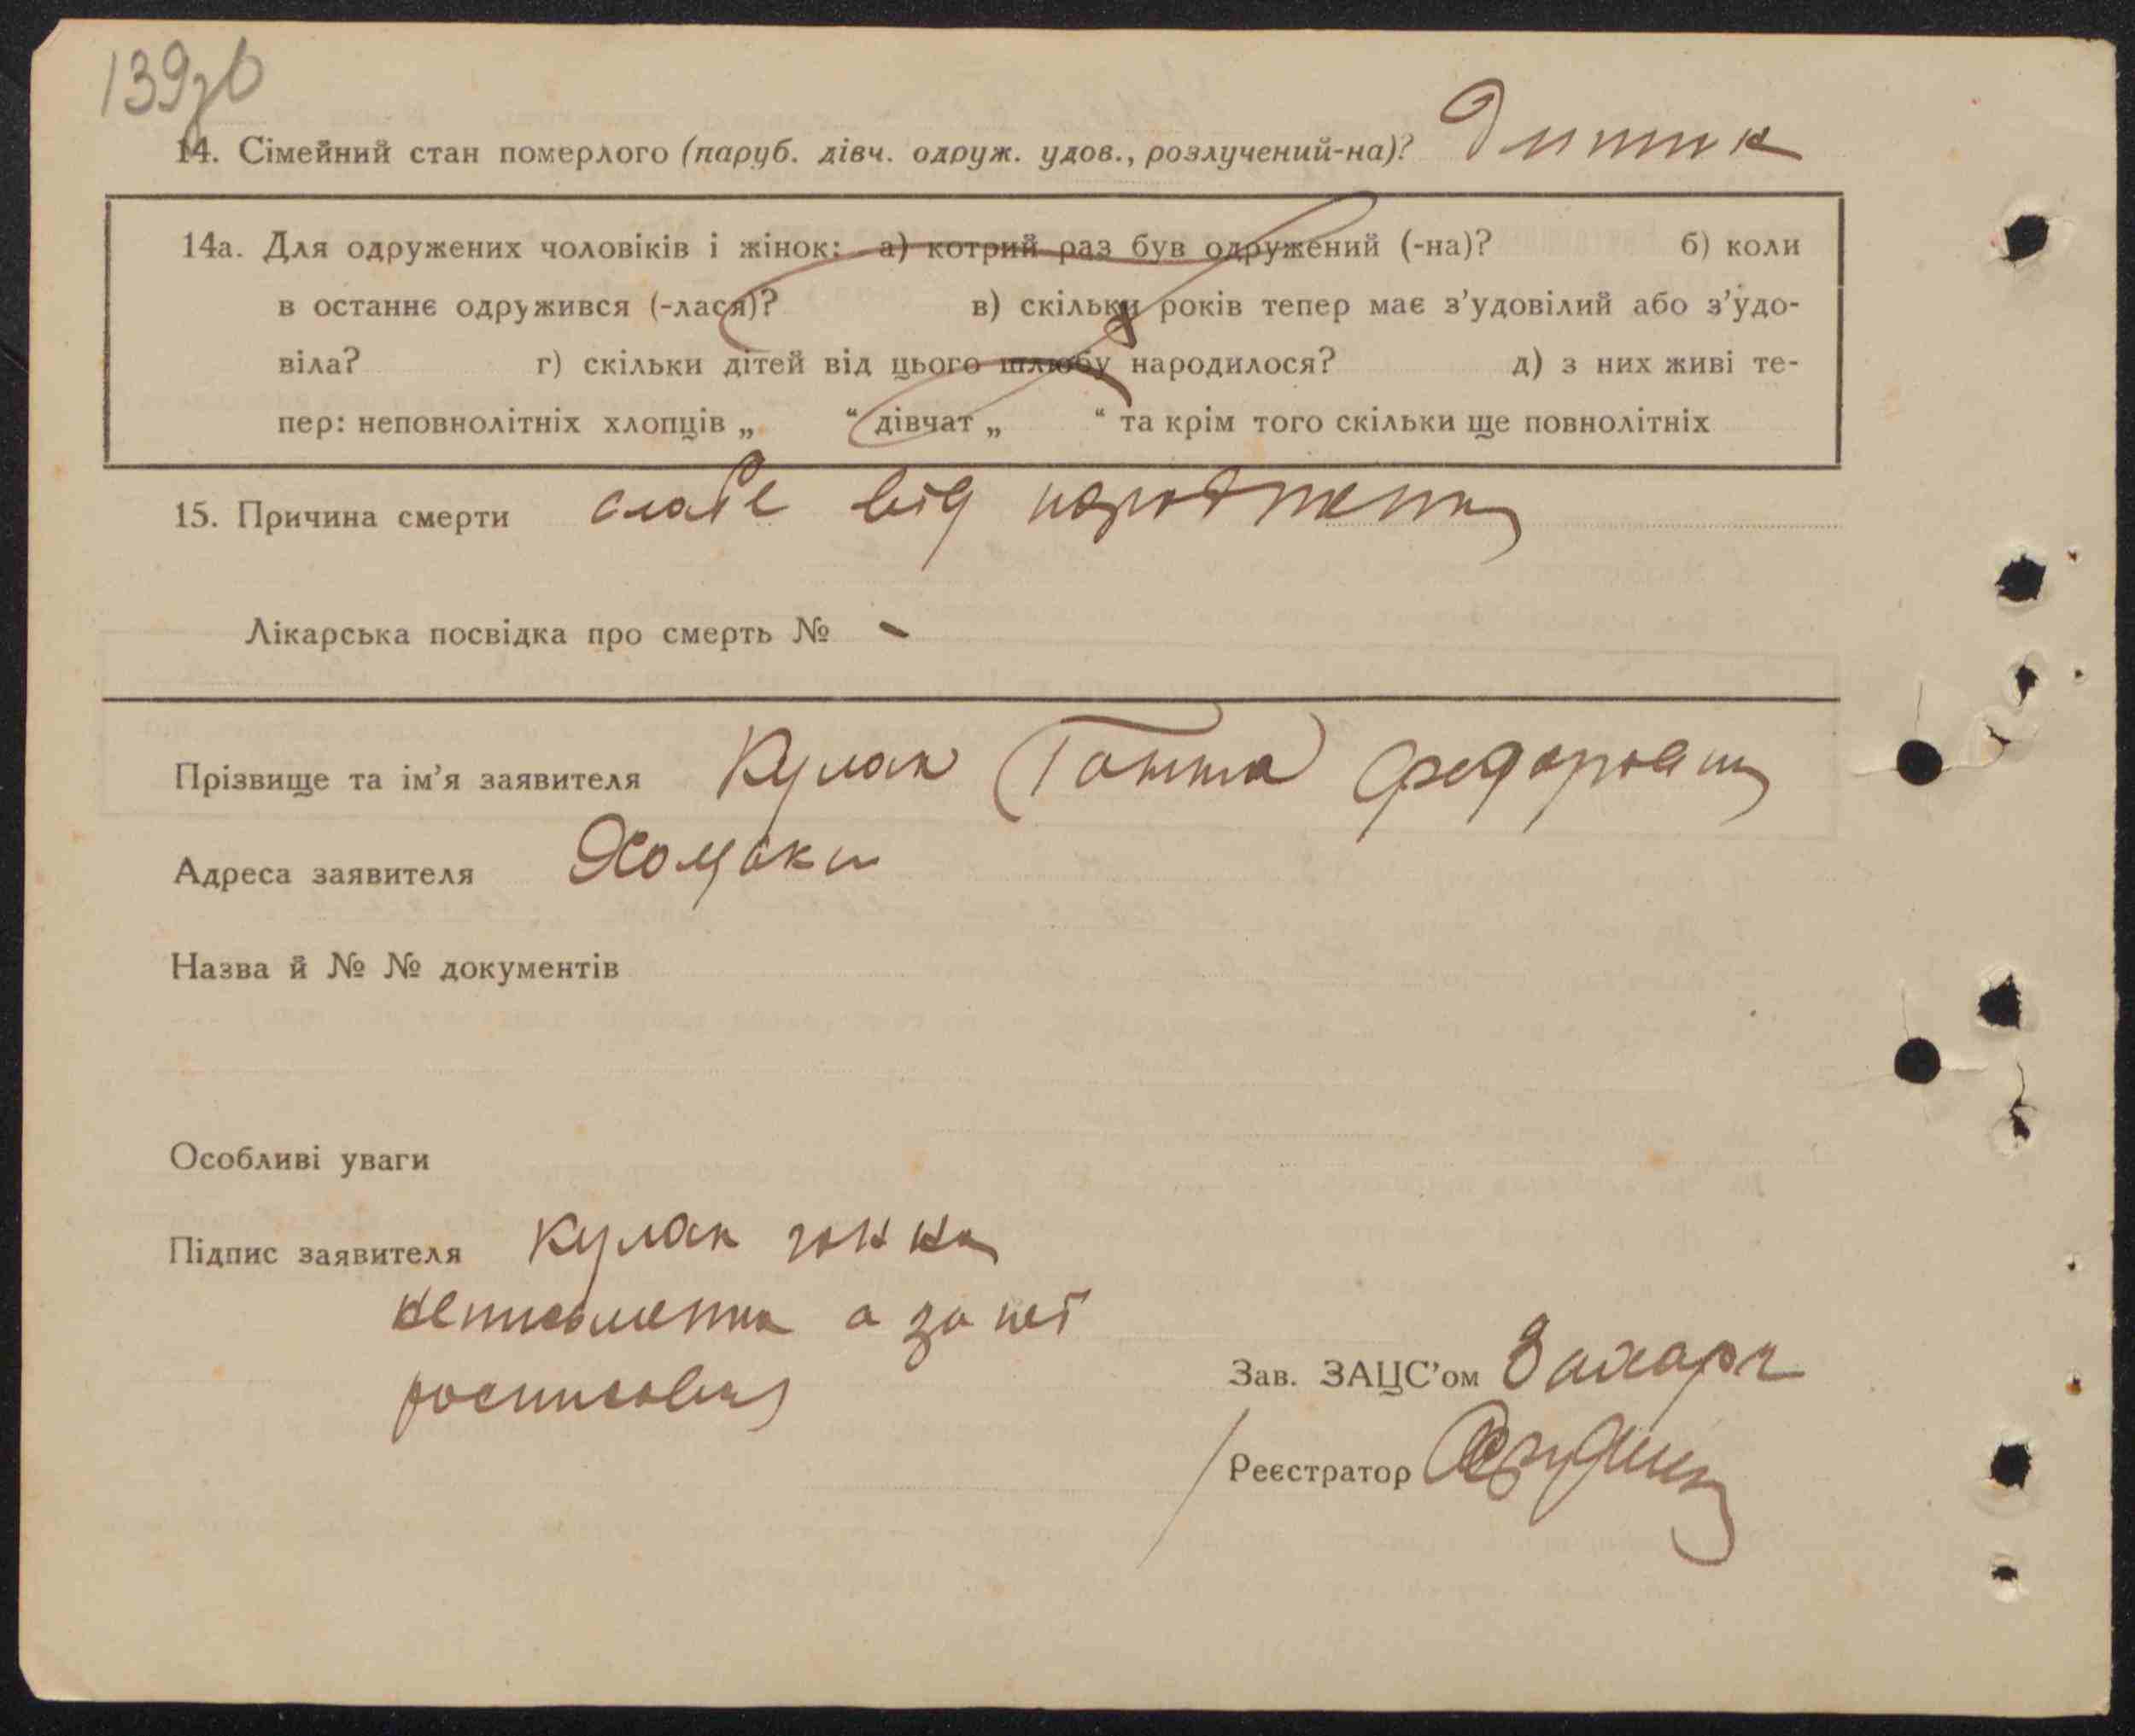 139зв
14. Сімейний стан померлого (паруб. дівч. одруж. удов., розлучений-на)? Дитик
14а. Для одружених чоловіків і жінок: а) котрий раз був одружений (-на)? б) коли
в останнє одружився (-лася)? в) скільки років тепер має з’удовілий або з’удо-
віла? г) скільки дітей від цього шлюбу народилося? д) з них живі те-
пер: неповнолітніх хлопців „ “ дівчат „ “ та крім того скільки ще повнолітніх
15. Причина смерти слабе від народження
Лікарська посвідка про смерть № -
Прізвище та ім’я заявителя Кулак Ганна Федоровна
Адреса заявителя Хомяки
Назва й № № документів
Особливі уваги
Підпис заявителя Кулак ганна
неписьменна а за неї
росписався
Зав. ЗАЦС’ом Захарч
Реєстратор